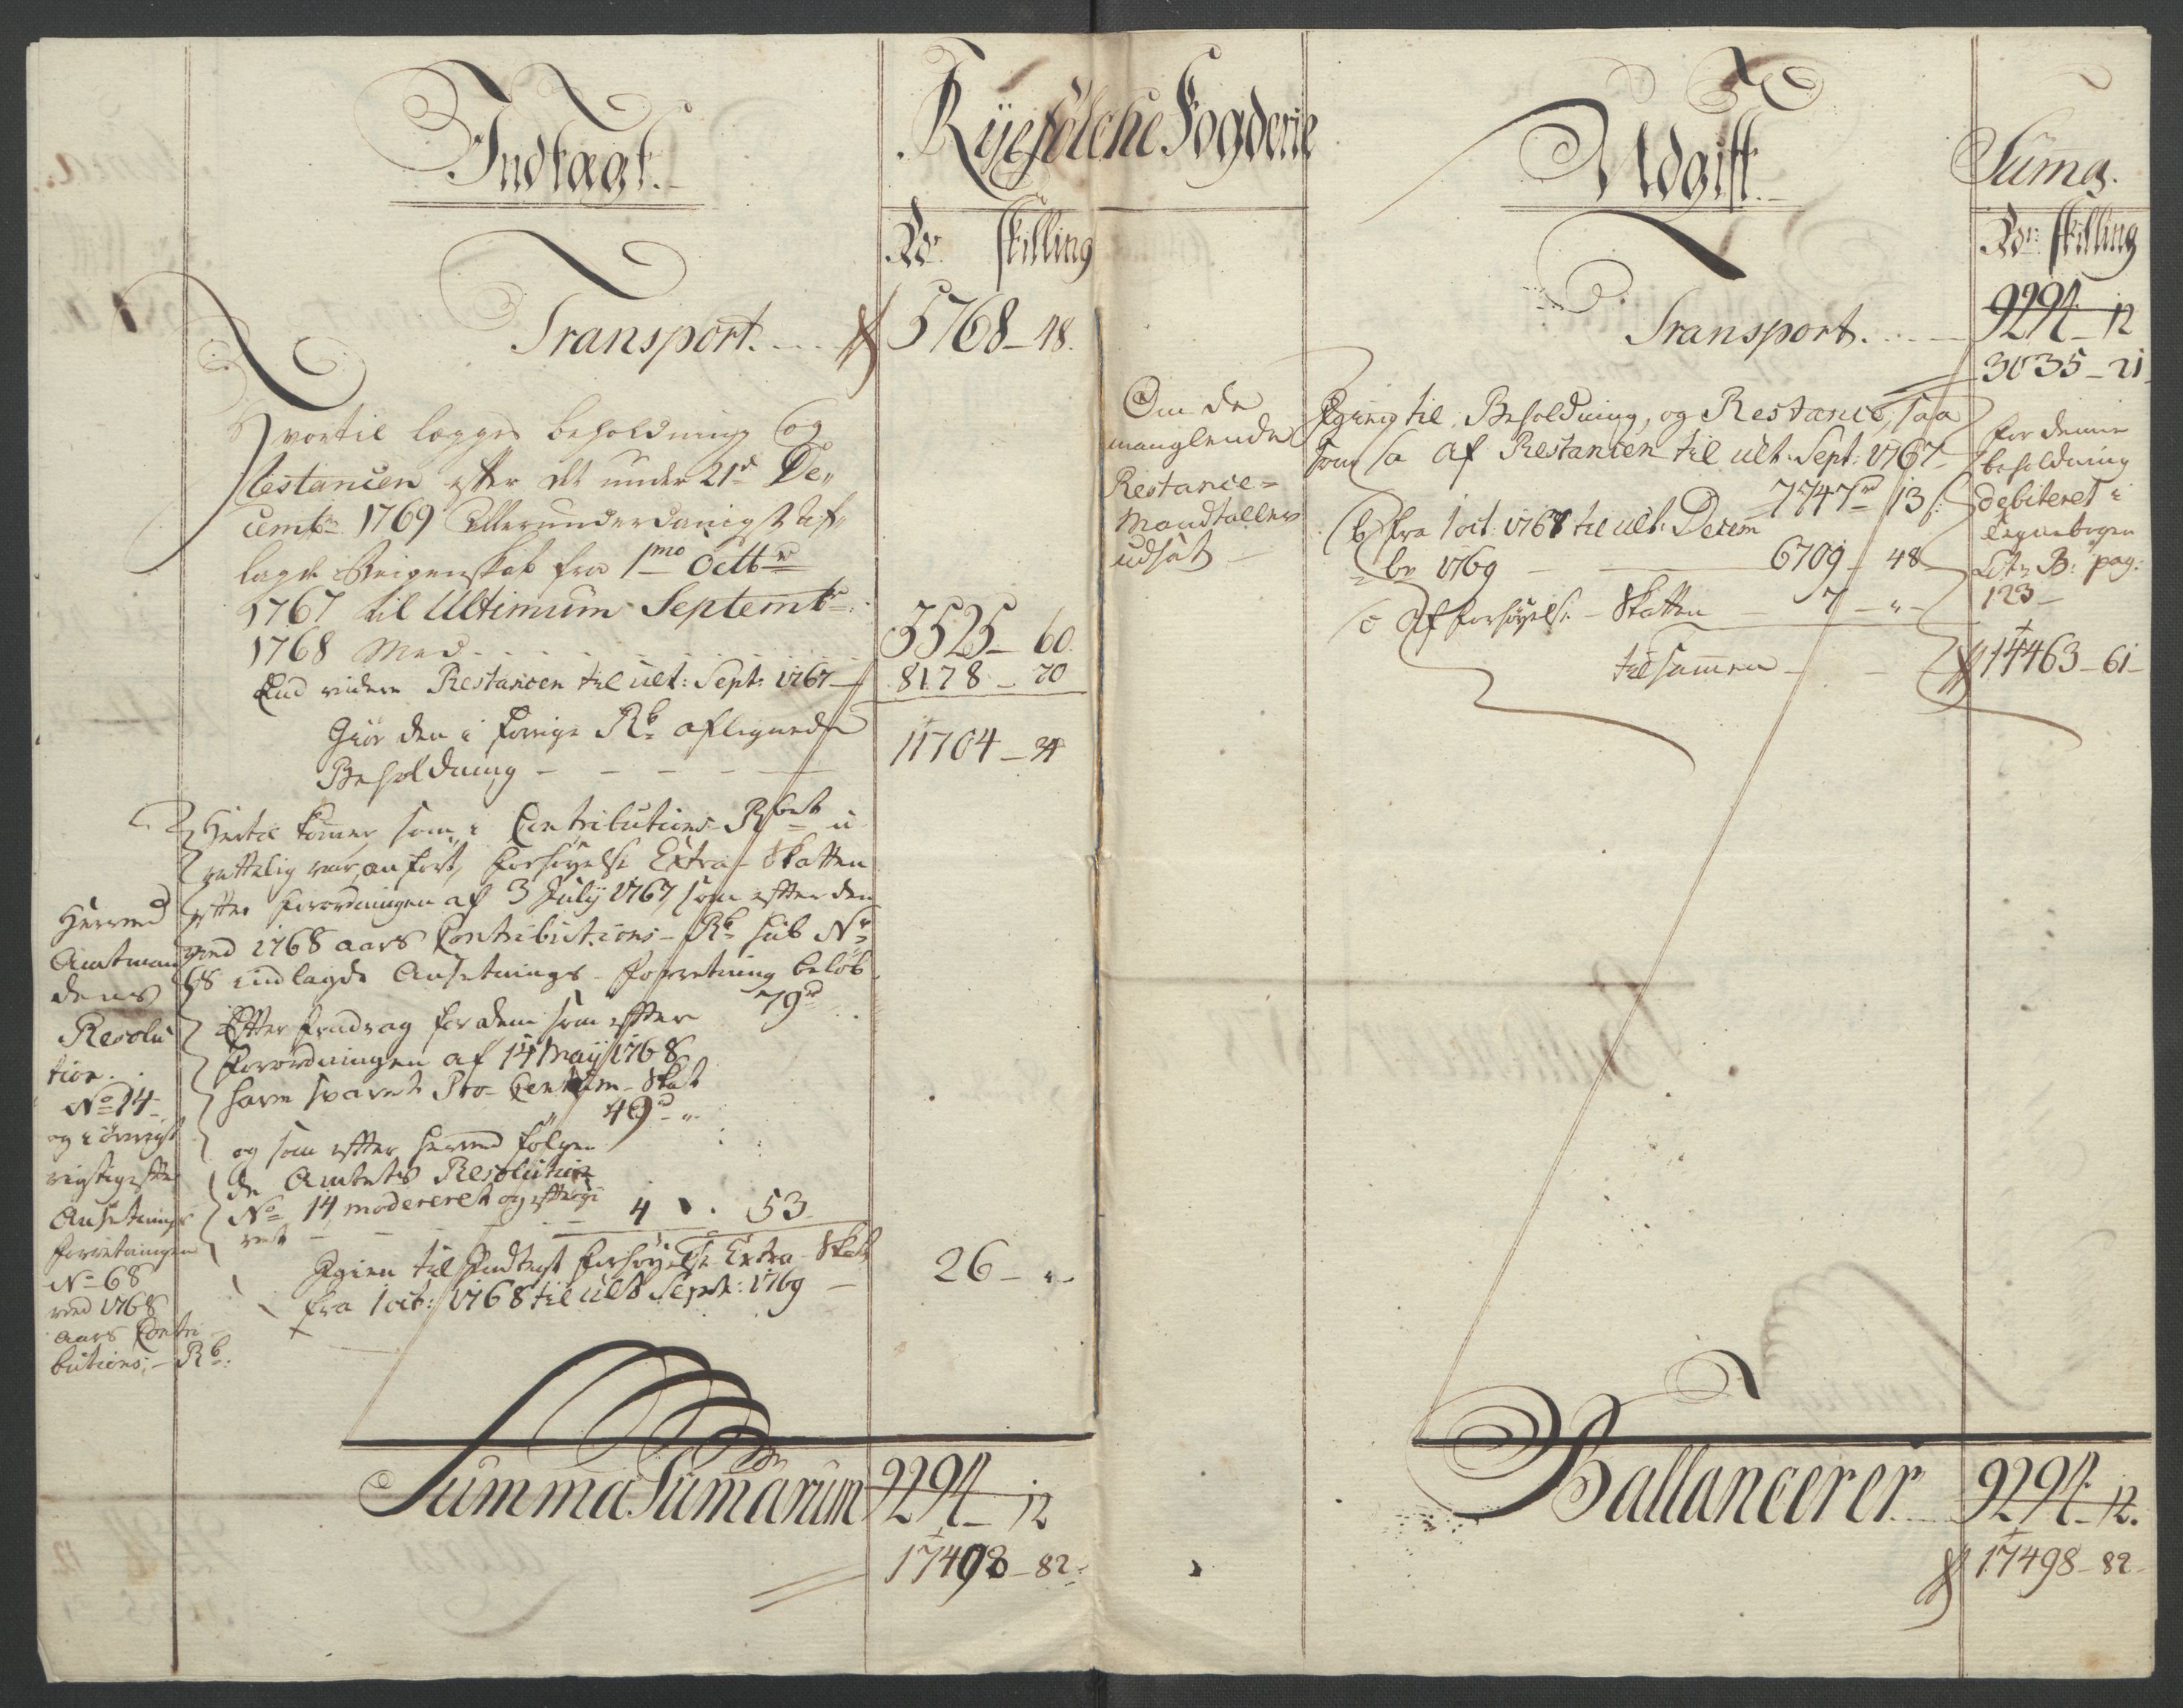 Indtægt.
Ryefølche Fogderie
Rdr Skilling
Transport. 5768 - 48.
Hvortil lægges beholdning og
Restancen efter det under 21d De„
cembr 1769 Allerunderdanigst af„
lagde Reigenskab fra 1mo Octbr
1767 til Ultimum Septembr
1768 Med 3525 - 60.
End videre Restancen til ult: Sept: 1767 8178 - 70
Giør den i forrige Rb aflignede
Beholdning 11704 - 34
Hertil kommer, som i Contributions-Rbet u
rettelig var anført, Forhøyelse Extra-Skatten
efter Forordningen af 3 July 1767, som efter den
ved 1768 aars Contributions-Rb sub No
68 indlagde Ansetnings-Forretning beløb
79rd
Efter Fradrag for dem som efter
Forordningen af 14 May 1768
have svaret Pro-Centum-Skat
49rd „
og som efter herved følgen
de Amtets Resolution
No 14 modereret og eftergi
vet 4 . 53
Igien til Indtegt Forhøyelse Extra-Skat
fra 1 oct: 1768 til ult Sept: 1769 26 - „
Herved
Amtman
dens
Resolu
tion.
No 14
og i øvrigt
rigtig efter
Ansetnings
Forretningen
No 68
ved 1768
aars Contri
butions-Rb:
Summa Summarum 9294 - 12
17498 - 82
Udgift.
Suma.
Rdr Skilling
Transport. 9294 - 12
3035 - 21
Om de
manglende
Restance=
Mandtaller
udsat
Igien til Beholdning, og Restance, saa
som (a af Restancen til ult. Sept: 1767
7747rd 13 s:
(b) fra 1 oct: 1768 til ult: Decem
br 1769 6709 - 48
(c Af Forhøyelse-Skatten 7 - „ -
tilsammen 14463 - 61
for denne
beholdning
debiteret i
Tegnebogen
Litr B: pag:
123
Ballancerer 9294 - 12.
17498 - 82